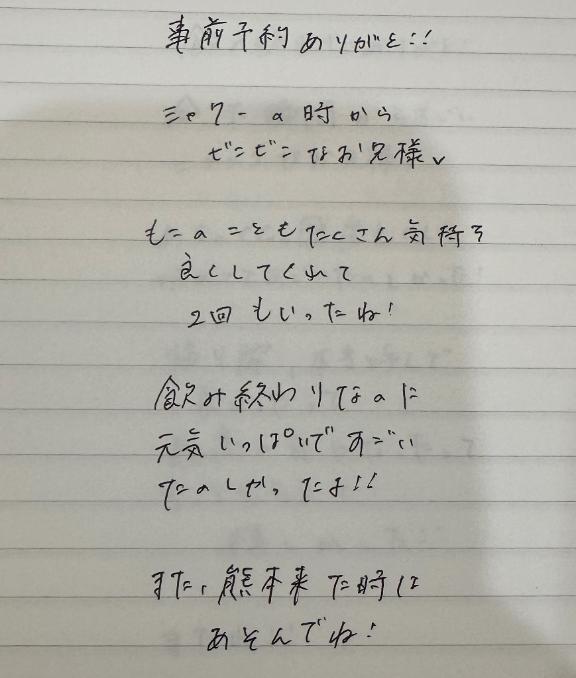 事前予約ありがと!!
シャワーの時から
ビンビンなお兄様✓
もこのこともたくさん気持ち
良くしてくれて
2回もいったね!
飲み終わりなのに
元気いっぱいですごい
たのしかったよ!!
また、熊本来た時は
あそんでね!